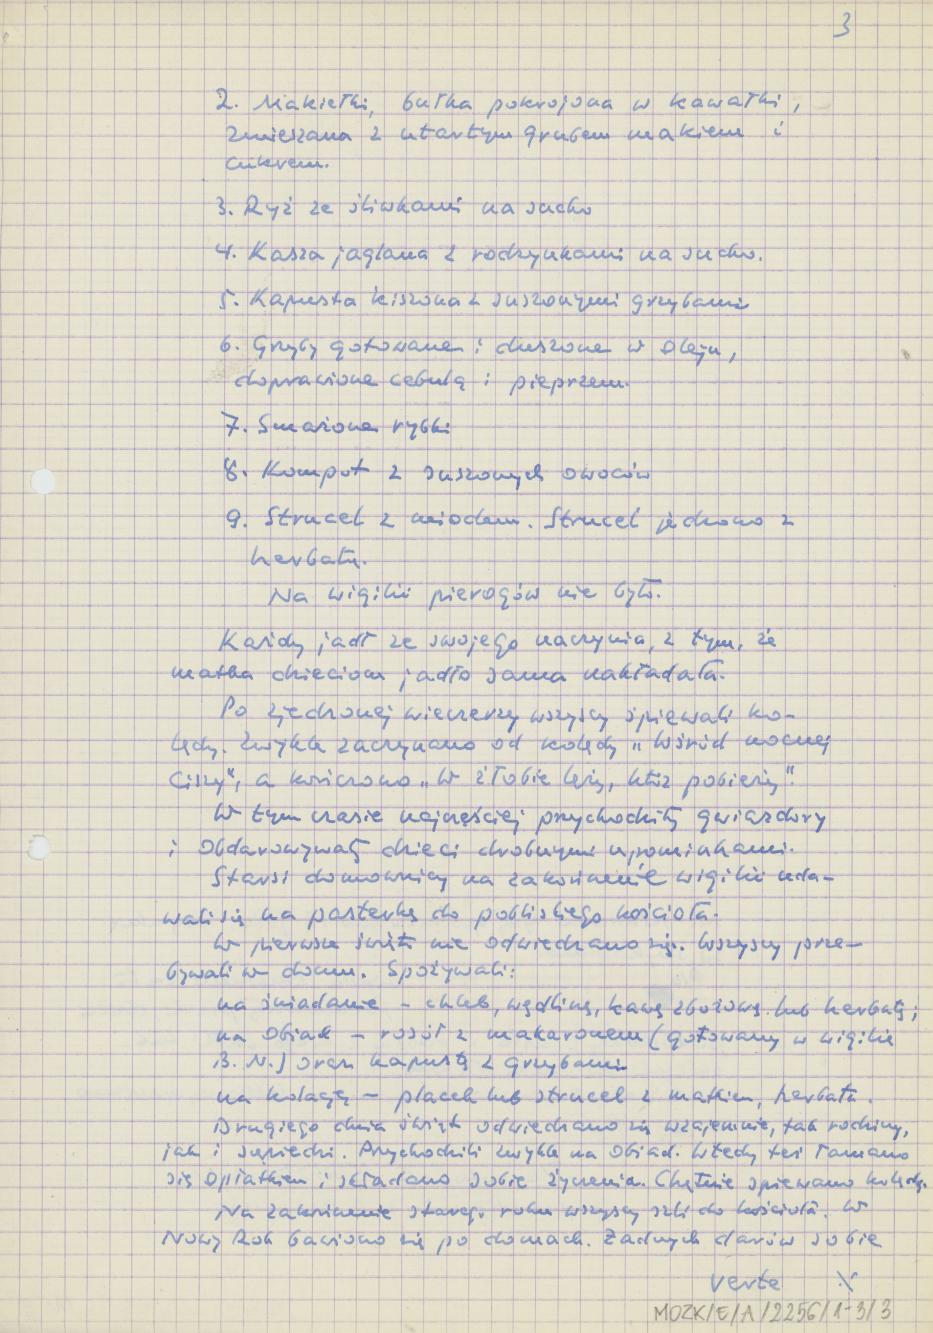 3
2. Makiełki, bułka pokrojona w kawałki,
zmieszana z utartym grubem makiem i
cukrem.
3. Ryż ze śliwkami na sucho
4. Kasza jaglana z rodzynkami na sucho.
5. Kapusta kiszona z suszonymi grzybami
6. Grzyby gotowane i duszone w oleju,
doprawione cebulą i pieprzem.
7. Smażone rybki
8. Kompot z suszonych owoców
9. Strucel z miodem. Strucel jedzono z
herbatą.
Na wigilii pierogów nie było.
Każdy jadł ze swojego naczynia, z tym, że
matka dzieciom jadło sama nakładała.
Po zjedzonej wieczerzy wszyscy śpiewali ko-
lędy. Zwykle zaczynano od kolędy „Wśród nocnej
Ciszy", a kończono „W żłobie leży, któż pobieży".
W tym czasie najczęściej przychodziły gwiazdory
i obdarowywały dzieci drobnymi upominkami.
Starsi domownicy na zakończenie wigilii uda-
wali się na pasterkę do pobliskiego kościoła.
W pierwsze święto nie odwiedzano się. Wszyscy prze-
bywali w domu. Spożywali:
na śniadanie - chleb, wędlinę, kawę zbożową lub herbatę;
na obiad - rosół z makaronem (gotowany w wigilię
B. N.) oraz kapustę z grzybami
na kolację - placek lub strucel z makiem, herbata.
Drugiego dnia świąt odwiedzano się wzajemnie, tak rodziny,
jak i sąsiedzi. Przychodzili zwykle na obiad. Wtedy też łamano
się opłatkiem i składano sobie życzenia. Chętnie śpiewano kolędy.
Na zakończenie starego roku wszyscy szli do kościoła. W
Nowy Rok bawiono się po domach. Żadnych darów sobie
verte
MOZK/E/A/2256/1-3/3